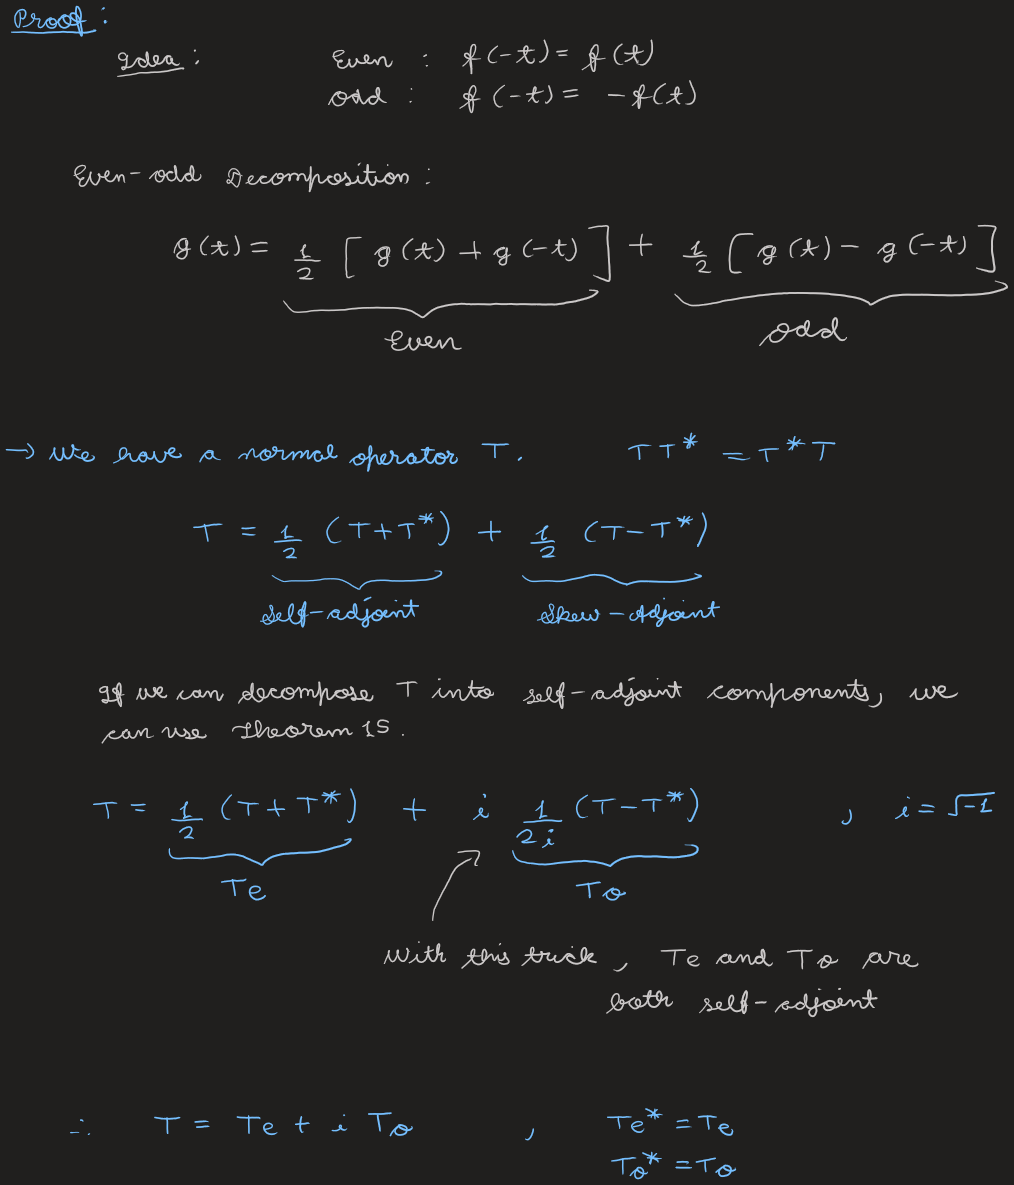 Proof :
Idea :
Even : f(-t) = f(t)
odd : f(-t) = -f(t)
Even-odd Decomposition :
g(t) = 1/2 [ g(t) + g(-t) ] + 1/2 [ g(t) - g(-t) ]
Even odd
→ We have a normal operator T. TT* = T*T
T = 1/2 (T+T*) + 1/2 (T-T*)
Self-adjoint Skew-Adjoint
If we can decompose T into self-adjoint components, we
can use Theorem 15.
T = 1/2 (T+T*) + i 1/2i (T-T*) , i = √-1
Te To
With this trick, Te and To are
both self-adjoint
∴ T = Te + i To , Te* = Te
To* = To